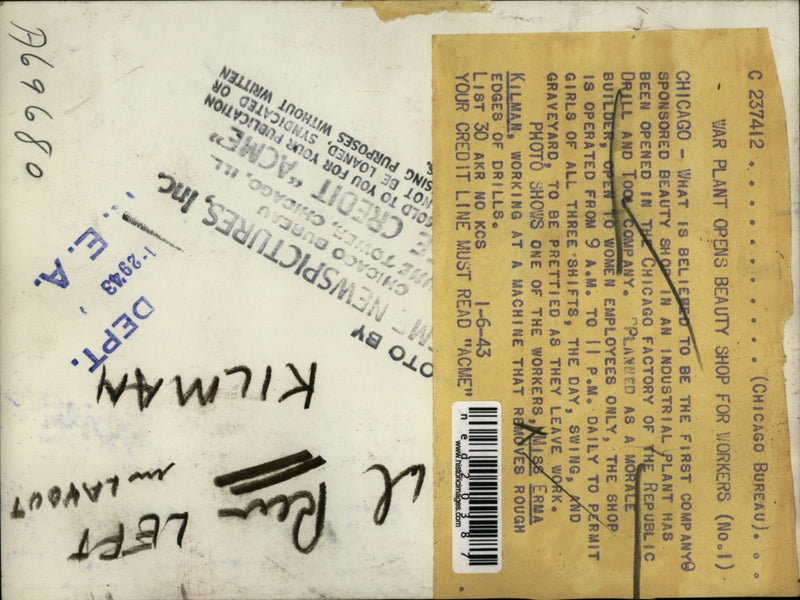 C 237412 . . . . . . . . . . . . (CHICAGO BUREAU). . .
WAR PLANT OPENS BEAUTY SHOP FOR WORKERS (No.1)
CHICAGO - WHAT IS BELIEVED TO BE THE FIRST COMPANY@
SPONSORED BEAUTY SHOP IN AN INDUSTRIAL PLANT HAS
BEEN OPENED IN THE CHICAGO FACTORY OF THE REPUBLIC
DRILL AND TOOL COMPANY. PLANNED AS A MORALE
BUILDER, OPEN TO WOMEN EMPLOYEES ONLY, THE SHOP
IS OPERATED FROM 9 A.M. TO 11 P.M. DAILY TO PERMIT
GIRLS OF ALL THREE SHIFTS, THE DAY, SWING, AND
GRAVEYARD, TO BE PRETTIED AS THEY LEAVE WORK.
PHOTO SHOWS ONE OF THE WORKERS, MISS ERMA
KILMAN, WORKING AT A MACHINE THAT REMOVES ROUGH
EDGES OF DRILLS.
LIST 30 AKR NO KCS 1-6-43
YOUR CREDIT LINE MUST READ "ACME"
ned20387
www.historicimages.com
A69680
OTO BY
ME NEWSPICTURES, Inc.
CHICAGO BUREAU
UNE TOWER, CHICAGO, ILL.
E CREDIT "ACME"
SOLD TO YOU FOR YOUR PUBLICATION
NOT BE LOANED, SYNDICATED OR
SING PURPOSES WITHOUT WRITTEN
E. A.
1-29-43
DEPT.
KILMAN
LEFT
in LAYOUT